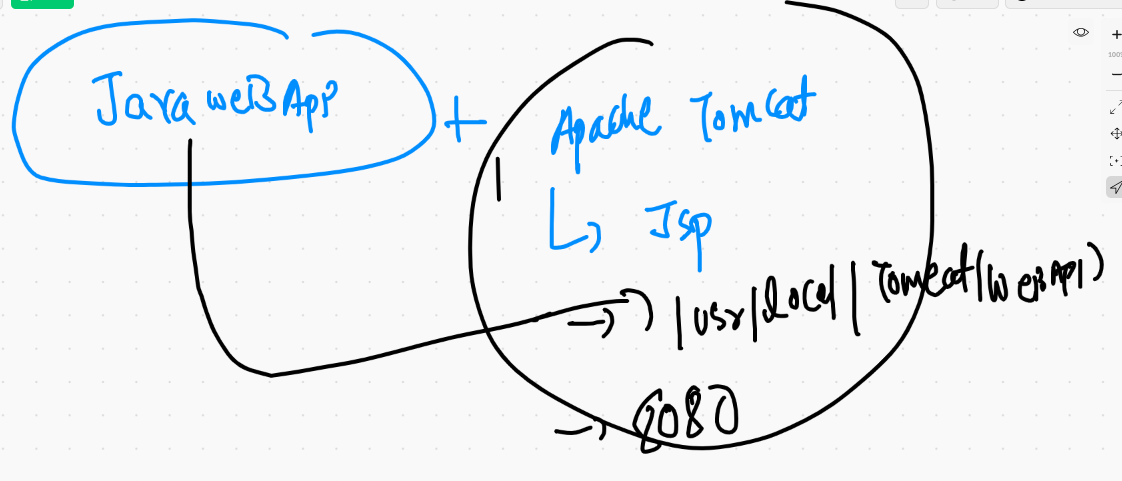 Java weB App
+
Apache Tomcat
Jsp
/usr/local/Tomcat/weBAPP/
8080
100%